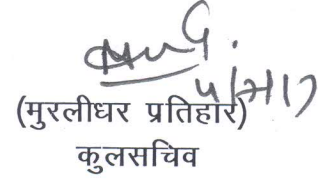 (मुरलीधर प्रतिहार)
कुलसचिव